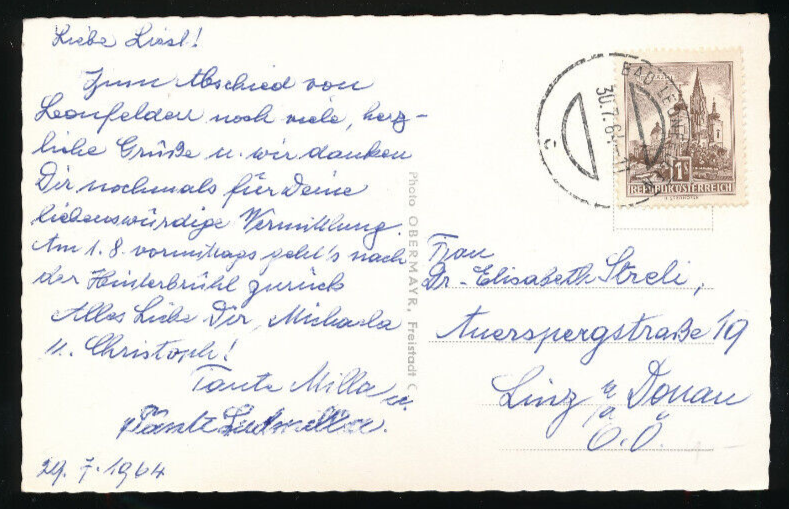 Liebe Liesl!
Zum Abschied von
Leonfelden noch viele, herz-
liche Grüße u. wir danken
Dir nochmals für Deine
liebenswürdige Vermittlung.
Am 1.8. vormittags geht's nach
der Hinterbrühl zurück
Alles Liebe Dir, Michaela
u. Christoph!
Tante Milla u.
Tante Ludmilla.
29.7.1964
Photo OBERMAYR, Freistadt
BAD LEONF
30.7.64
1S
REPUBLIK ÖSTERREICH
Frau
Dr. Elisabeth Streli,
Auerspergstraße 19
Linz a/a Donau
O.Ö.